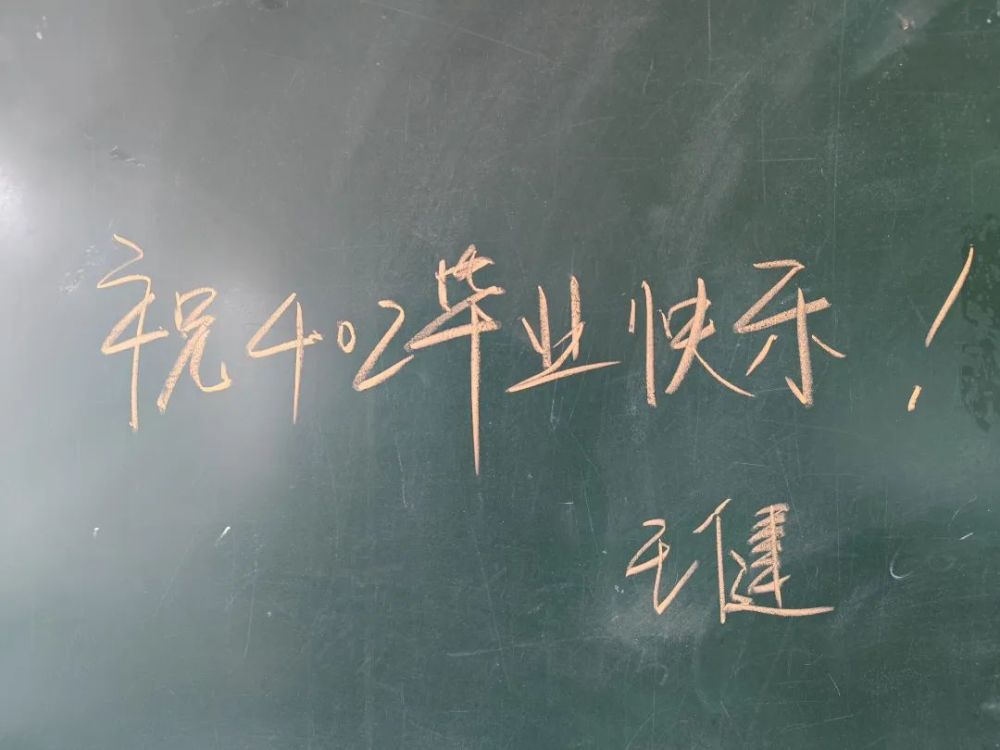 祝402毕业快乐！
王健